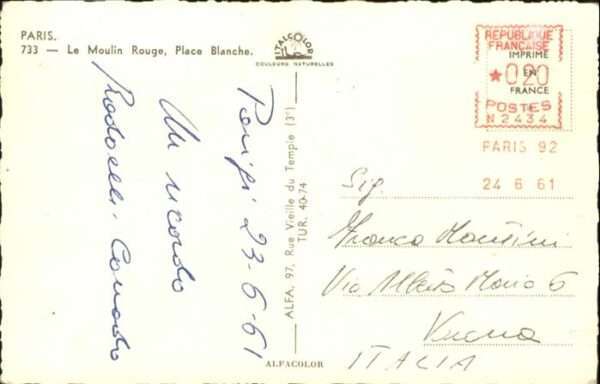 PARIS.
733 — Le Moulin Rouge, Place Blanche.
ITALCOLOR
COULEURS NATURELLES
REPUBLIQUE
FRANCAISE
IMPRIMÉ
EN
FRANCE
★ 0,20
POSTES
N 2434
PARIS 92
24 6 61
Parigi 23-6-61
Un ricordo
ALFA, 97, Rue Vieille du Temple (3e)
TUR. 40-74
Sig.
Franco
Via Mario 6
ITALIA
ALFACOLOR